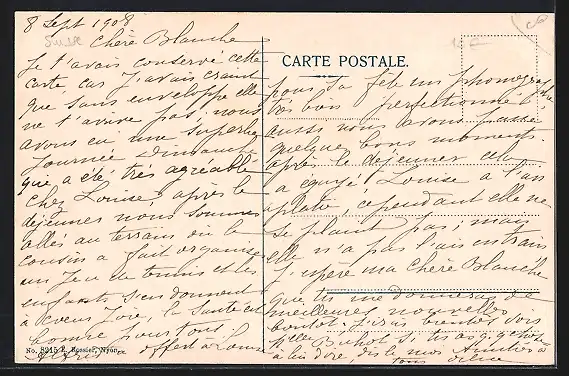 8 Sept 1908
Suisse
Chère Blanche
Je t'avais conservé cette
carte, car j'avais craint
que sans enveloppe elle
ne t'arrive pas; nous
avons eu une superbe
journée Dimanche
qui a été très agréable
chez Louise, après le
déjeuner nous sommes
allés au terrain où le
cousin a fait organiser
un jeu de tennis et les
enfants s'en donnent
à coeur joie, la santé est
bonne pour tous
offert à
No. 8215 E. Rossier, Nyon
CARTE POSTALE.
pour sa fête un phonographe
très bon perfectionné
aussi nous avons passé
quelques bons moments
après le déjeuner cela
a égayé Louise à l'an
cependant elle ne
se plaint pas; mais
elle n'a pas l'air en train
J'espère ma chère Blanche
que tu me donneras de
meilleures nouvelles
bientôt j'irai bientôt voir
à lui dire, dis le moi Amitiés à
tous